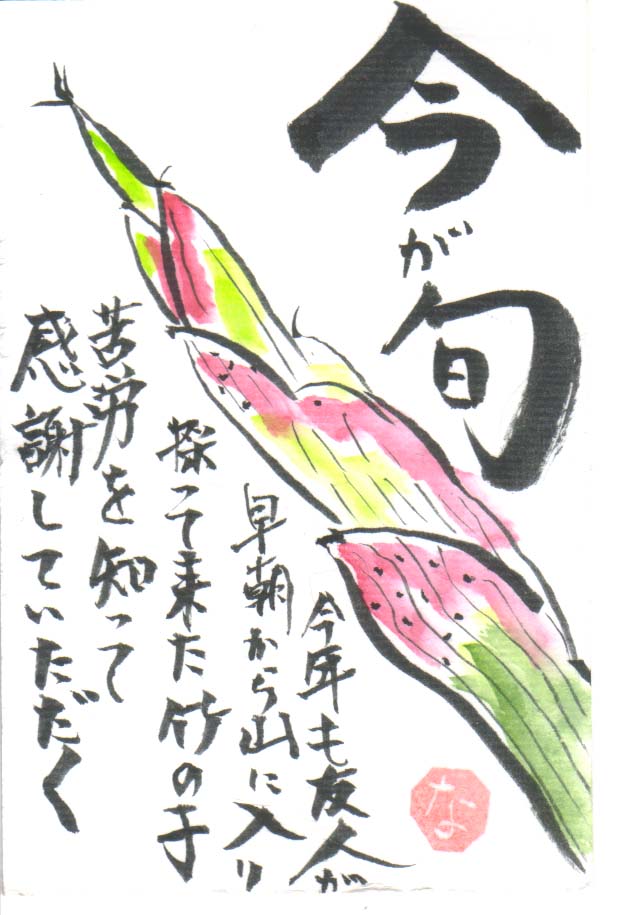 今が旬
今年も友人が
早朝から山に入り
採って来た竹の子
苦労を知って
感謝していただく
な